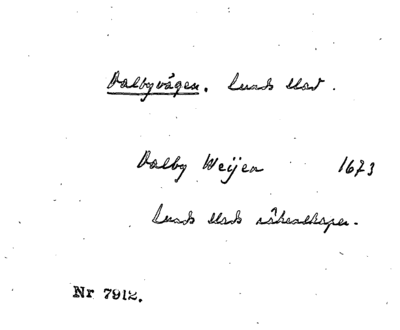 Dalbyvägen. Lunds stad.
Dalby Weijen 1673
Lunds stads räkenskaper.
Nr 7912.